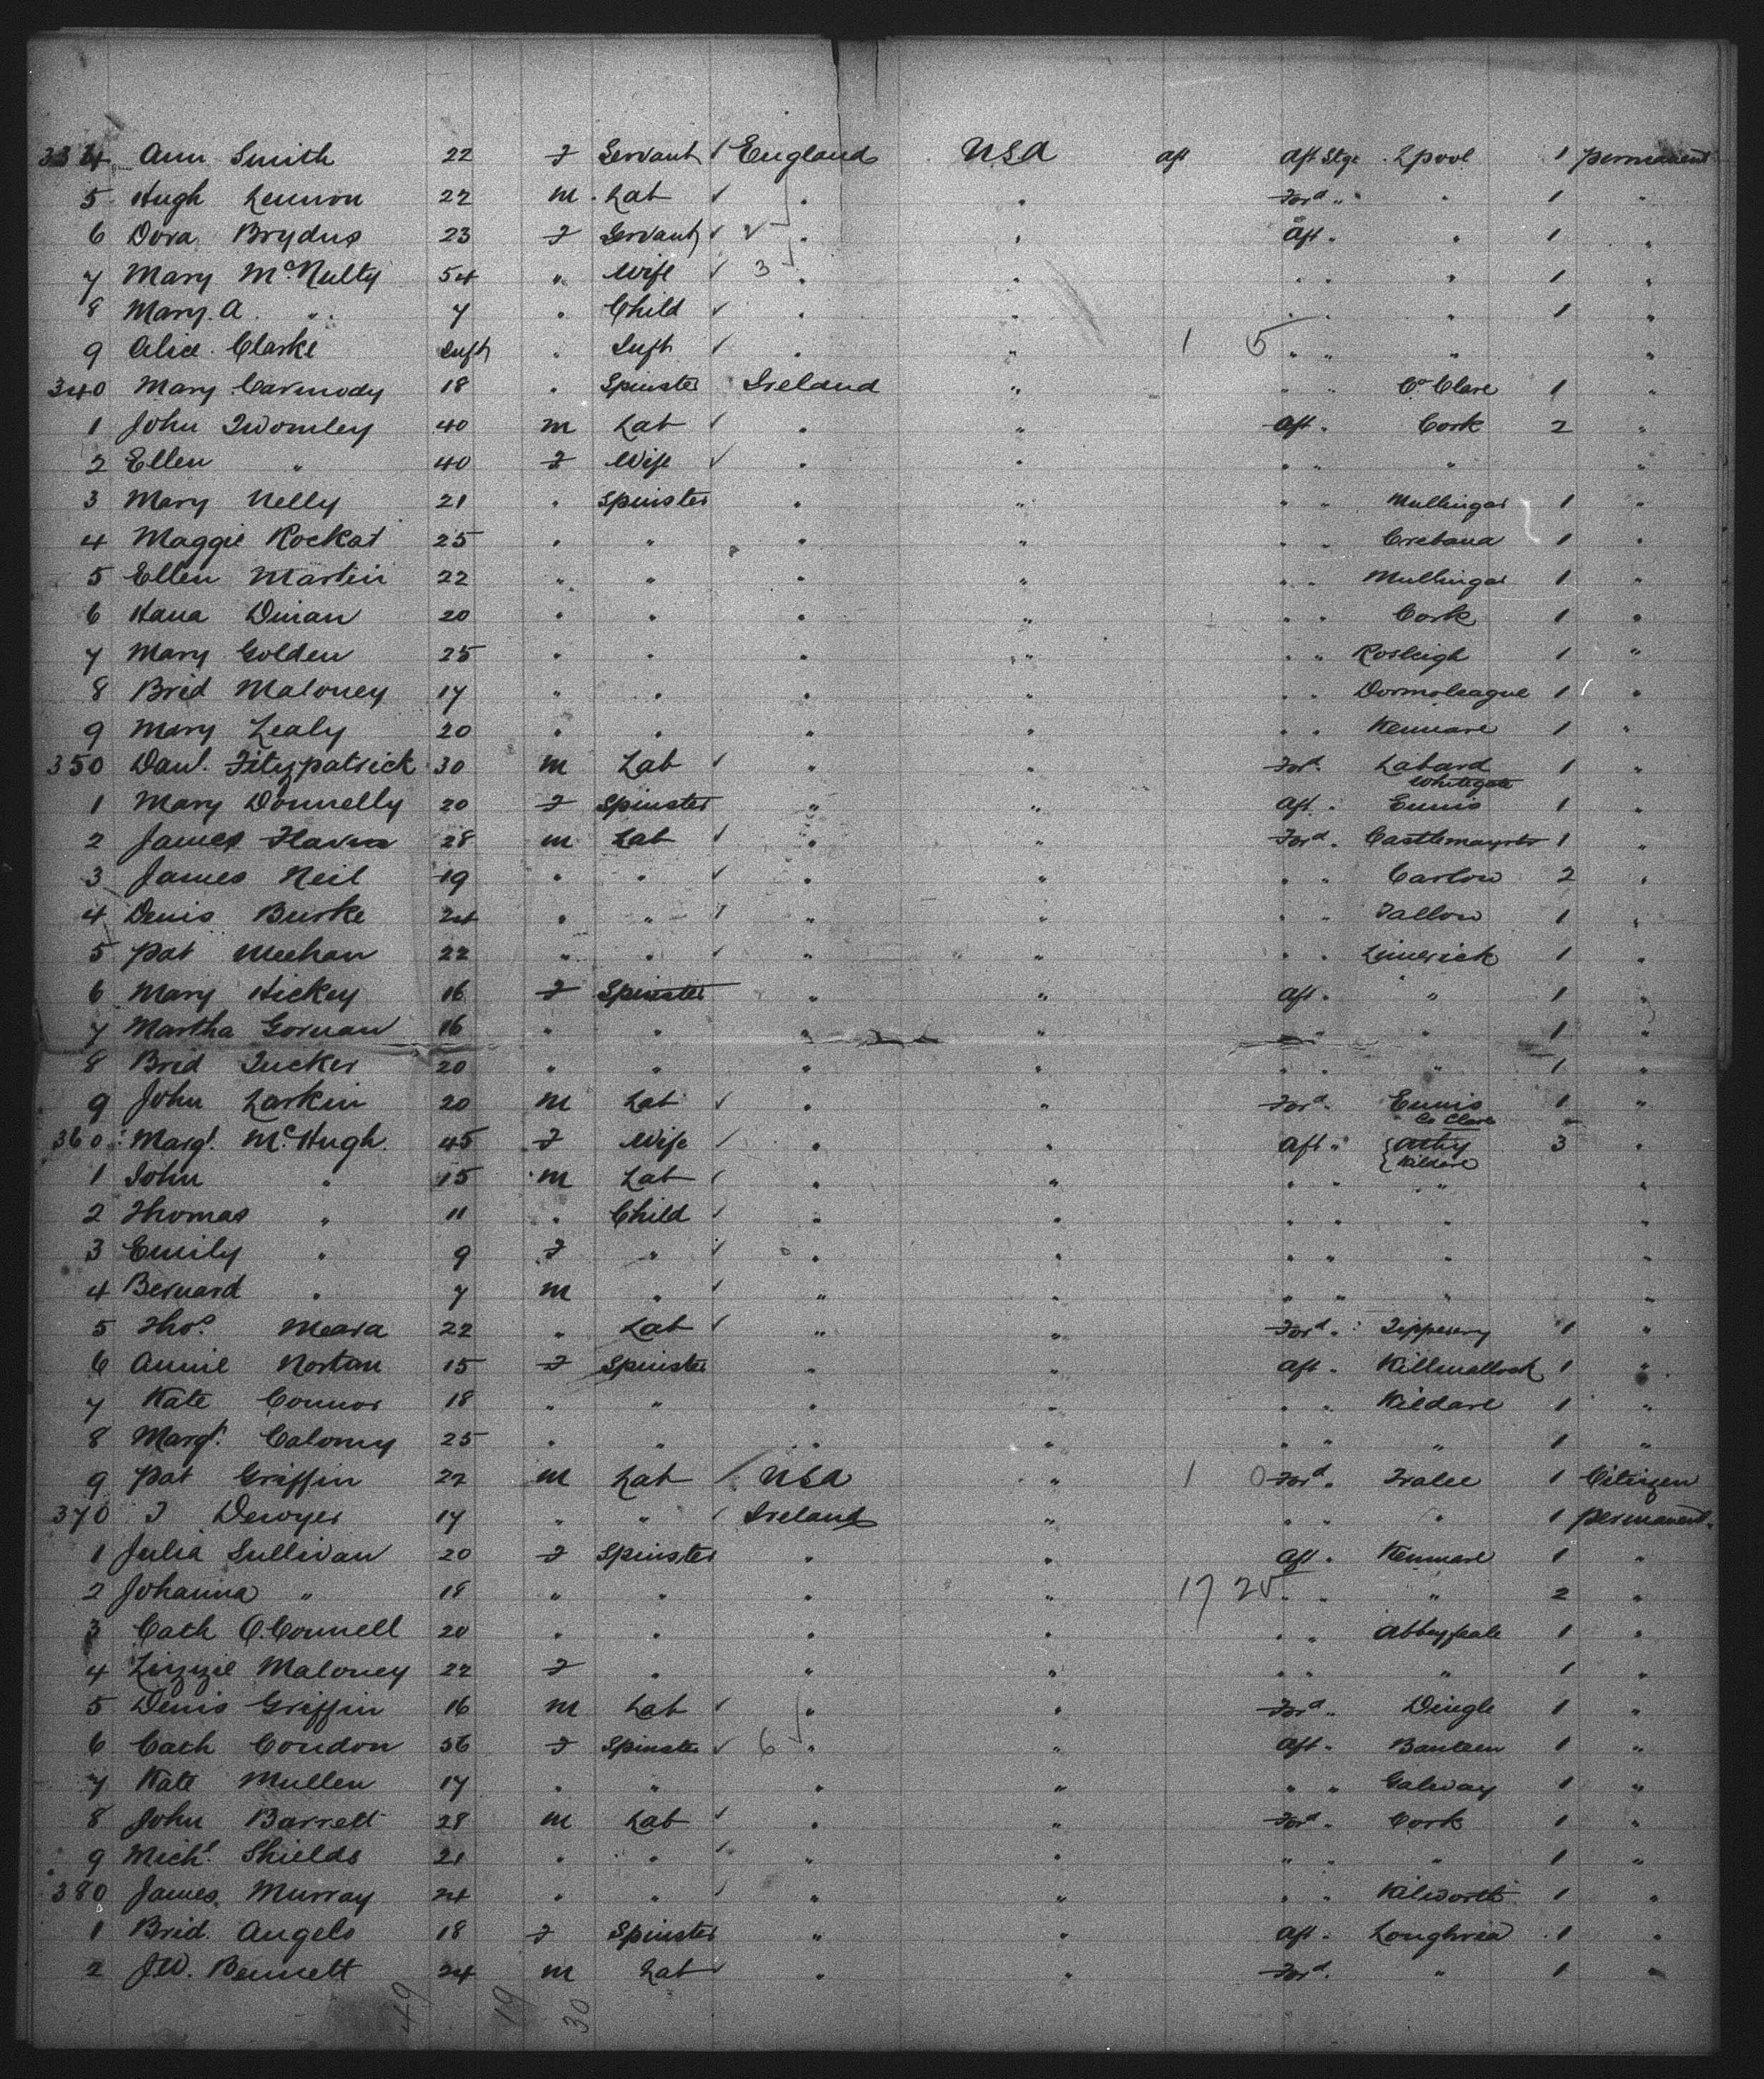 334 Ann Smith 22 F Servant ✓ England USA aft Aft Stge L'pool 1 permanent
5 Hugh Lennon 22 M Lab ✓ " " Ford " " 1 "
6 Dora Brydus 23 F Servant ✓ 2 " " Aft " " 1 "
7 Mary McNulty 54 " Wife ✓ 3 " " " " " 1 "
8 Mary A. " 7 " Child ✓ " " " " " 1 "
9 Alice Clarke Inft " Inft ✓ " " 1 5 " " " "
340 Mary Carmody 18 " Spinster Ireland " " " Co Clare 1 "
1 John Twomley 40 M Lab ✓ " " Aft " Cork 2 "
2 Ellen " 40 F Wife ✓ " " " " " "
3 Mary Nelly 21 " Spinster " " " " Mullingar 1 "
4 Maggie Rockat 25 " " " " " " 1 "
5 Ellen Martin 22 " " " " " " Mullingar 1 "
6 Hana Dinan 20 " " " " " " Cork 1 "
7 Mary Golden 25 " " " " " " Rosleigh 1 "
8 Brid Maloney 17 " " " " " " Dormoleague 1 "
9 Mary Lealy 20 " " " " " " Kenmare 1 "
350 Danl. Fitzpatrick 30 M Lab ✓ " " Ford. Labard 1 "
Whitegate
1 Mary Donnelly 20 F Spinster " " Aft. Ennis 1 "
2 James Flavin 28 M Lab ✓ " " Ford. Castlemayrtr 1 "
3 James Neil 19 " " ✓ " " " " Carlow 2 "
4 Denis Burke 24 " " ✓ " " " " Tallow 1 "
5 Pat Meehan 22 " " ✓ " " " " Limerick 1 "
6 Mary Hickey 16 F Spinster " " Aft. " 1 "
7 Martha Gorman 16 " " " " " " " 1 "
8 Brid Tucker 20 " " " " " " " 1 "
9 John Larkin 20 M Lab ✓ " " Ford. Ennis 1 "
Co Clare
360 Margt. McHugh. 45 F Wife ✓ " " Aft " Athy 3 "
Kildare
1 John " 15 M Lab ✓ " " " " " "
2 Thomas " 11 " Child ✓ " " " " " "
3 Emily " 9 F " ✓ " " " " " "
4 Bernard " 7 M " ✓ " " " " " "
5 Thos. Meara 22 " Lab ✓ " " Ford. Tipperery 1 "
6 Annie Nortan 15 F Spinster " " Aft. Killmallock 1 "
7 Kate Connor 18 " " " " " " Kildare 1 "
8 Margt. Calomy 25 " " " " " " " 1 "
9 Pat Griffin 22 M Lab ✓ USA " 1 0 Ford. Tralee 1 Citizen
370 T Dewyer 17 " " ✓ Ireland " " " " 1 permanent.
1 Julia Sullivan 20 F Spinster " " Aft. Kenmare 1 "
2 Johanna " 18 " " " " 17 25 " " " 2 "
3 Cath O.Connell 20 " " " " " " Abbeyfeale 1 "
4 Lizzie Maloney 22 F " " " " " " 1 "
5 Denis Griffin 16 M Lab ✓ " " Ford " Dingle 1 "
6 Cath Condon 56 F Spinster ✓ 6 " " Aft. Banteen 1 "
7 Kate Mullen 17 " " " " " " Galway 1 "
8 John Barrett 28 M Lab ✓ " " Ford. Cork 1 "
9 Michl. Shields 21 " " ✓ " " " " " 1 "
380 James Murray 24 " " ✓ " " " " Kilworth 1 "
1 Brid. Angels 18 F Spinster " " Aft. Loughrea 1 "
2 J.W. Bennett 24 M Lab ✓ " " Ford. " 1 "
49 19 30